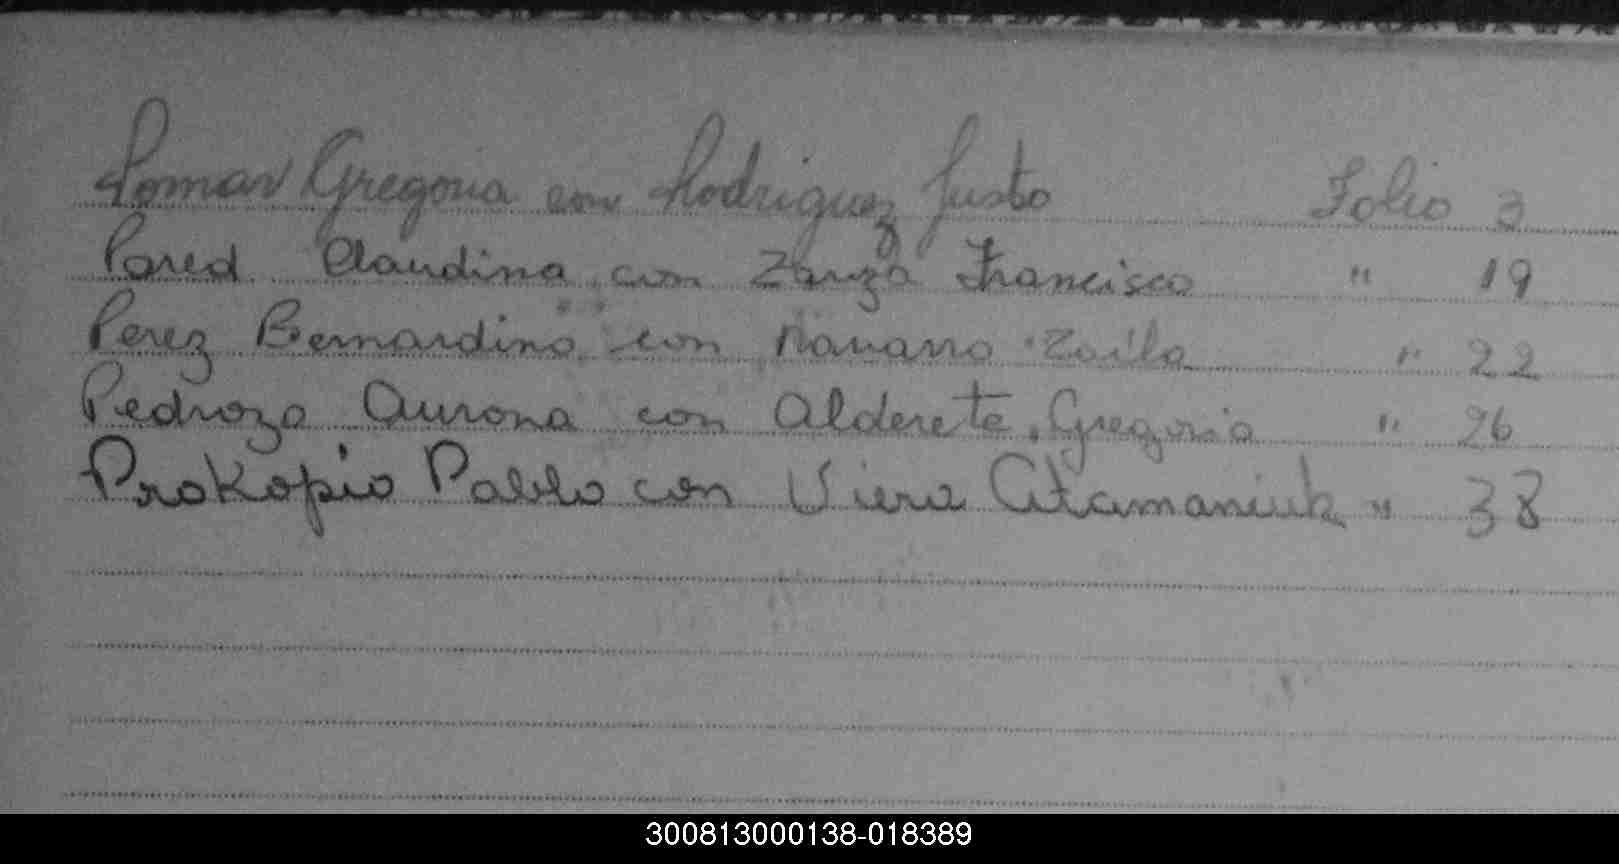 Pomar Gregoria con Rodriguez Justo Folio 3
Pared Claudina con Zarza Francisco " 19
Perez Bernardino con Navarro Zoila " 22
Pedroza Aurora con Alderete Gregorio " 26
Prokopio Pablo con Viera Atamaniuk " 38
300813000138-018389